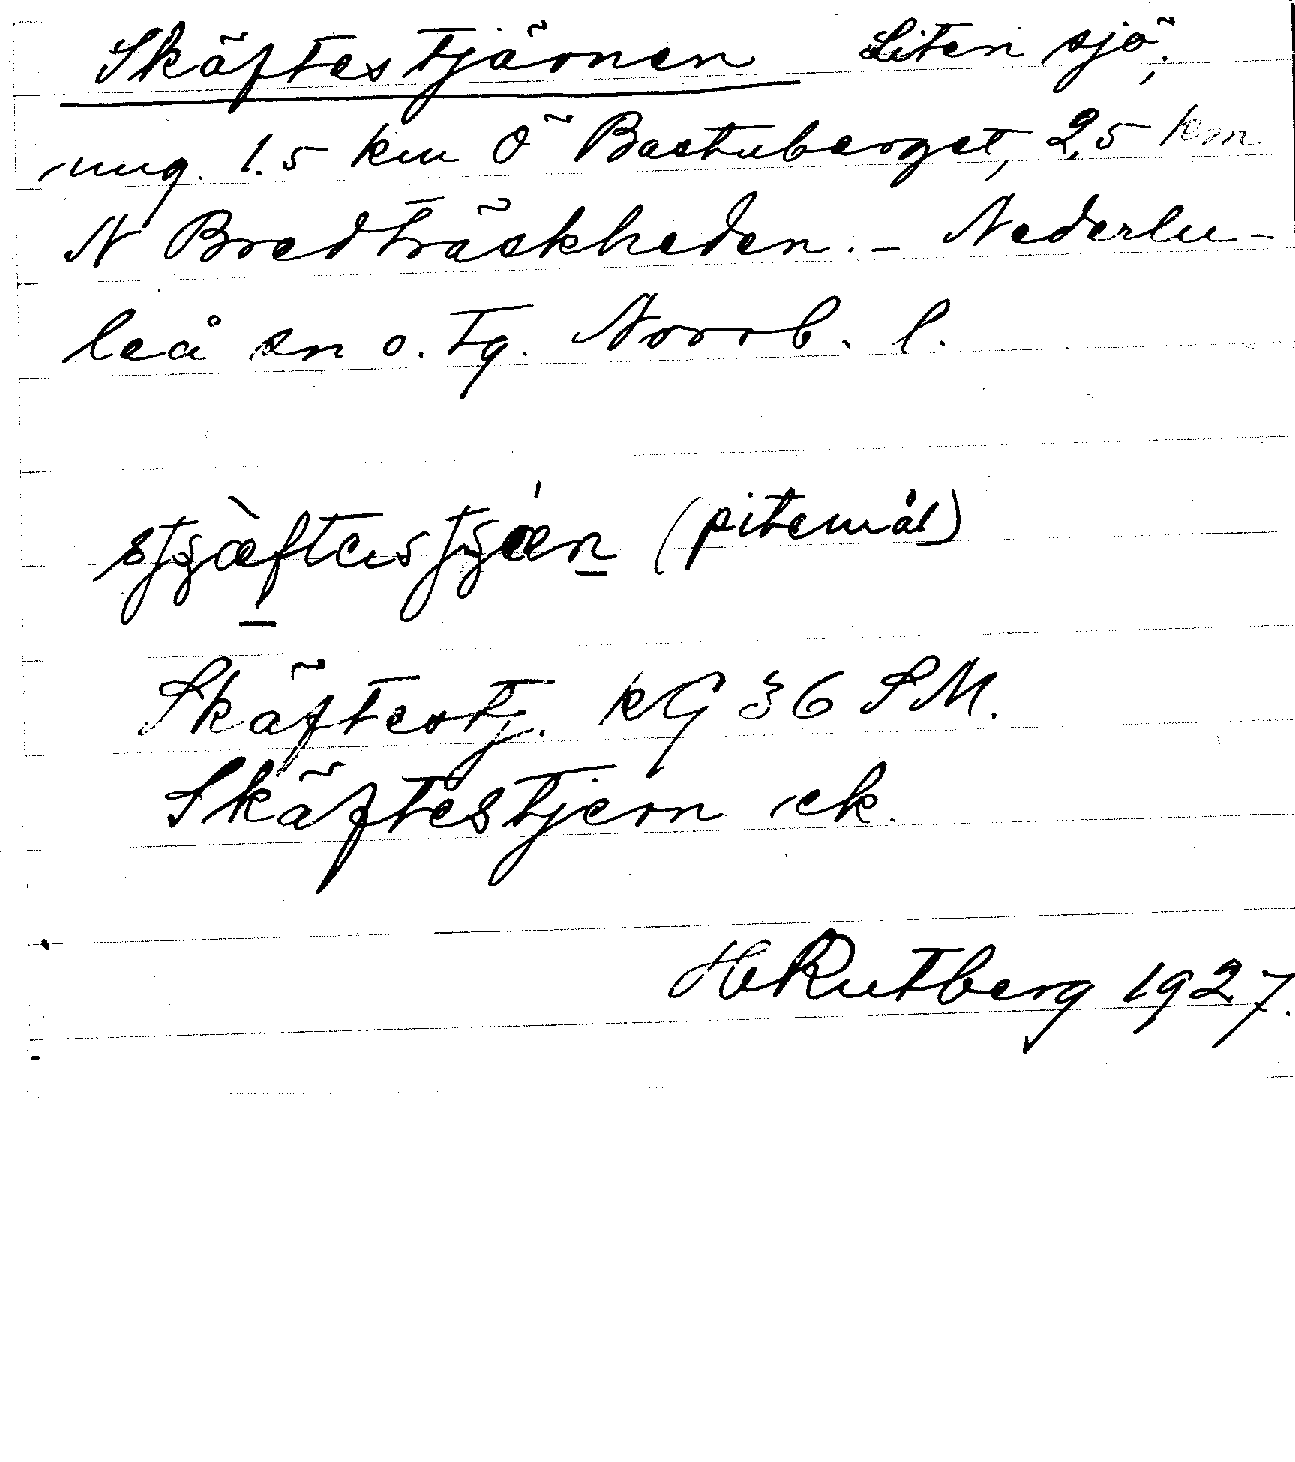 Skäftestjärnen Liten sjö,
ung. 1.5 km Ö Bastuberget, 2,5 km
N Bredträskheden. – Nederlu-
leå sn o. tg. Norrb. l.
(pitemål)
Skäftestj. kG 36 SM.
Skäftestjern ek.
H Rutberg 1927.